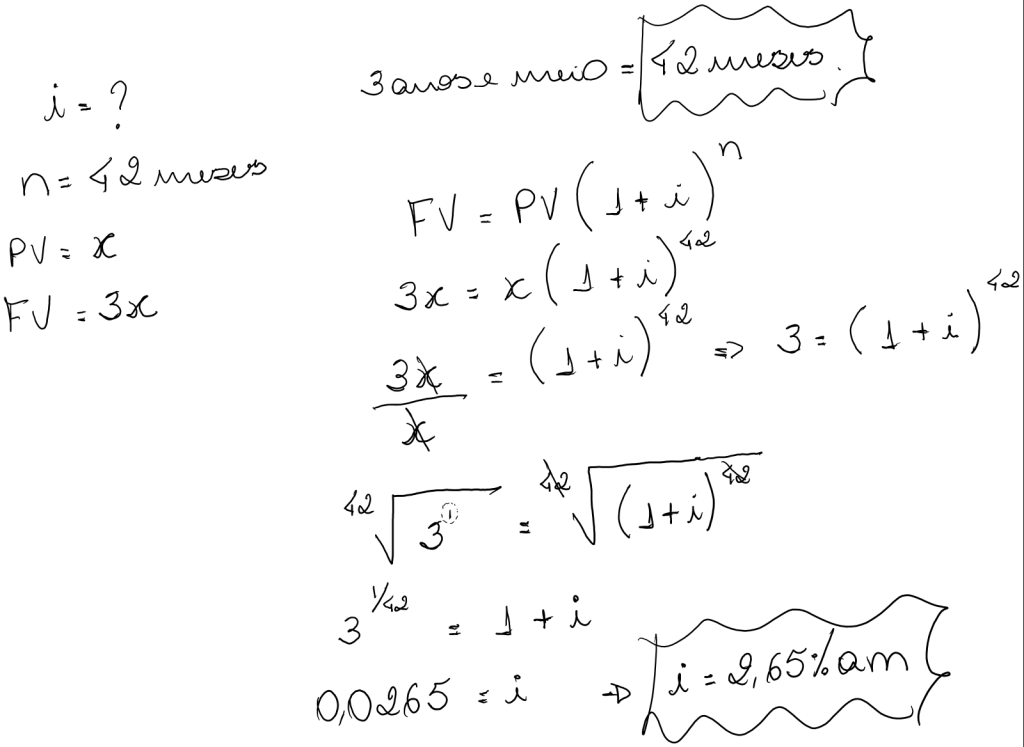 3 anos e meio = 42 meses.
i = ?
n = 42 meses
PV = x
FV = 3x
FV = PV (1 + i)^n
3x = x (1 + i)^42
3x/x = (1 + i)^42 => 3 = (1 + i)^42
42√3^1 = 42√(1 + i)^42
3^1/42 = 1 + i
0,0265 = i => i = 2,65% am